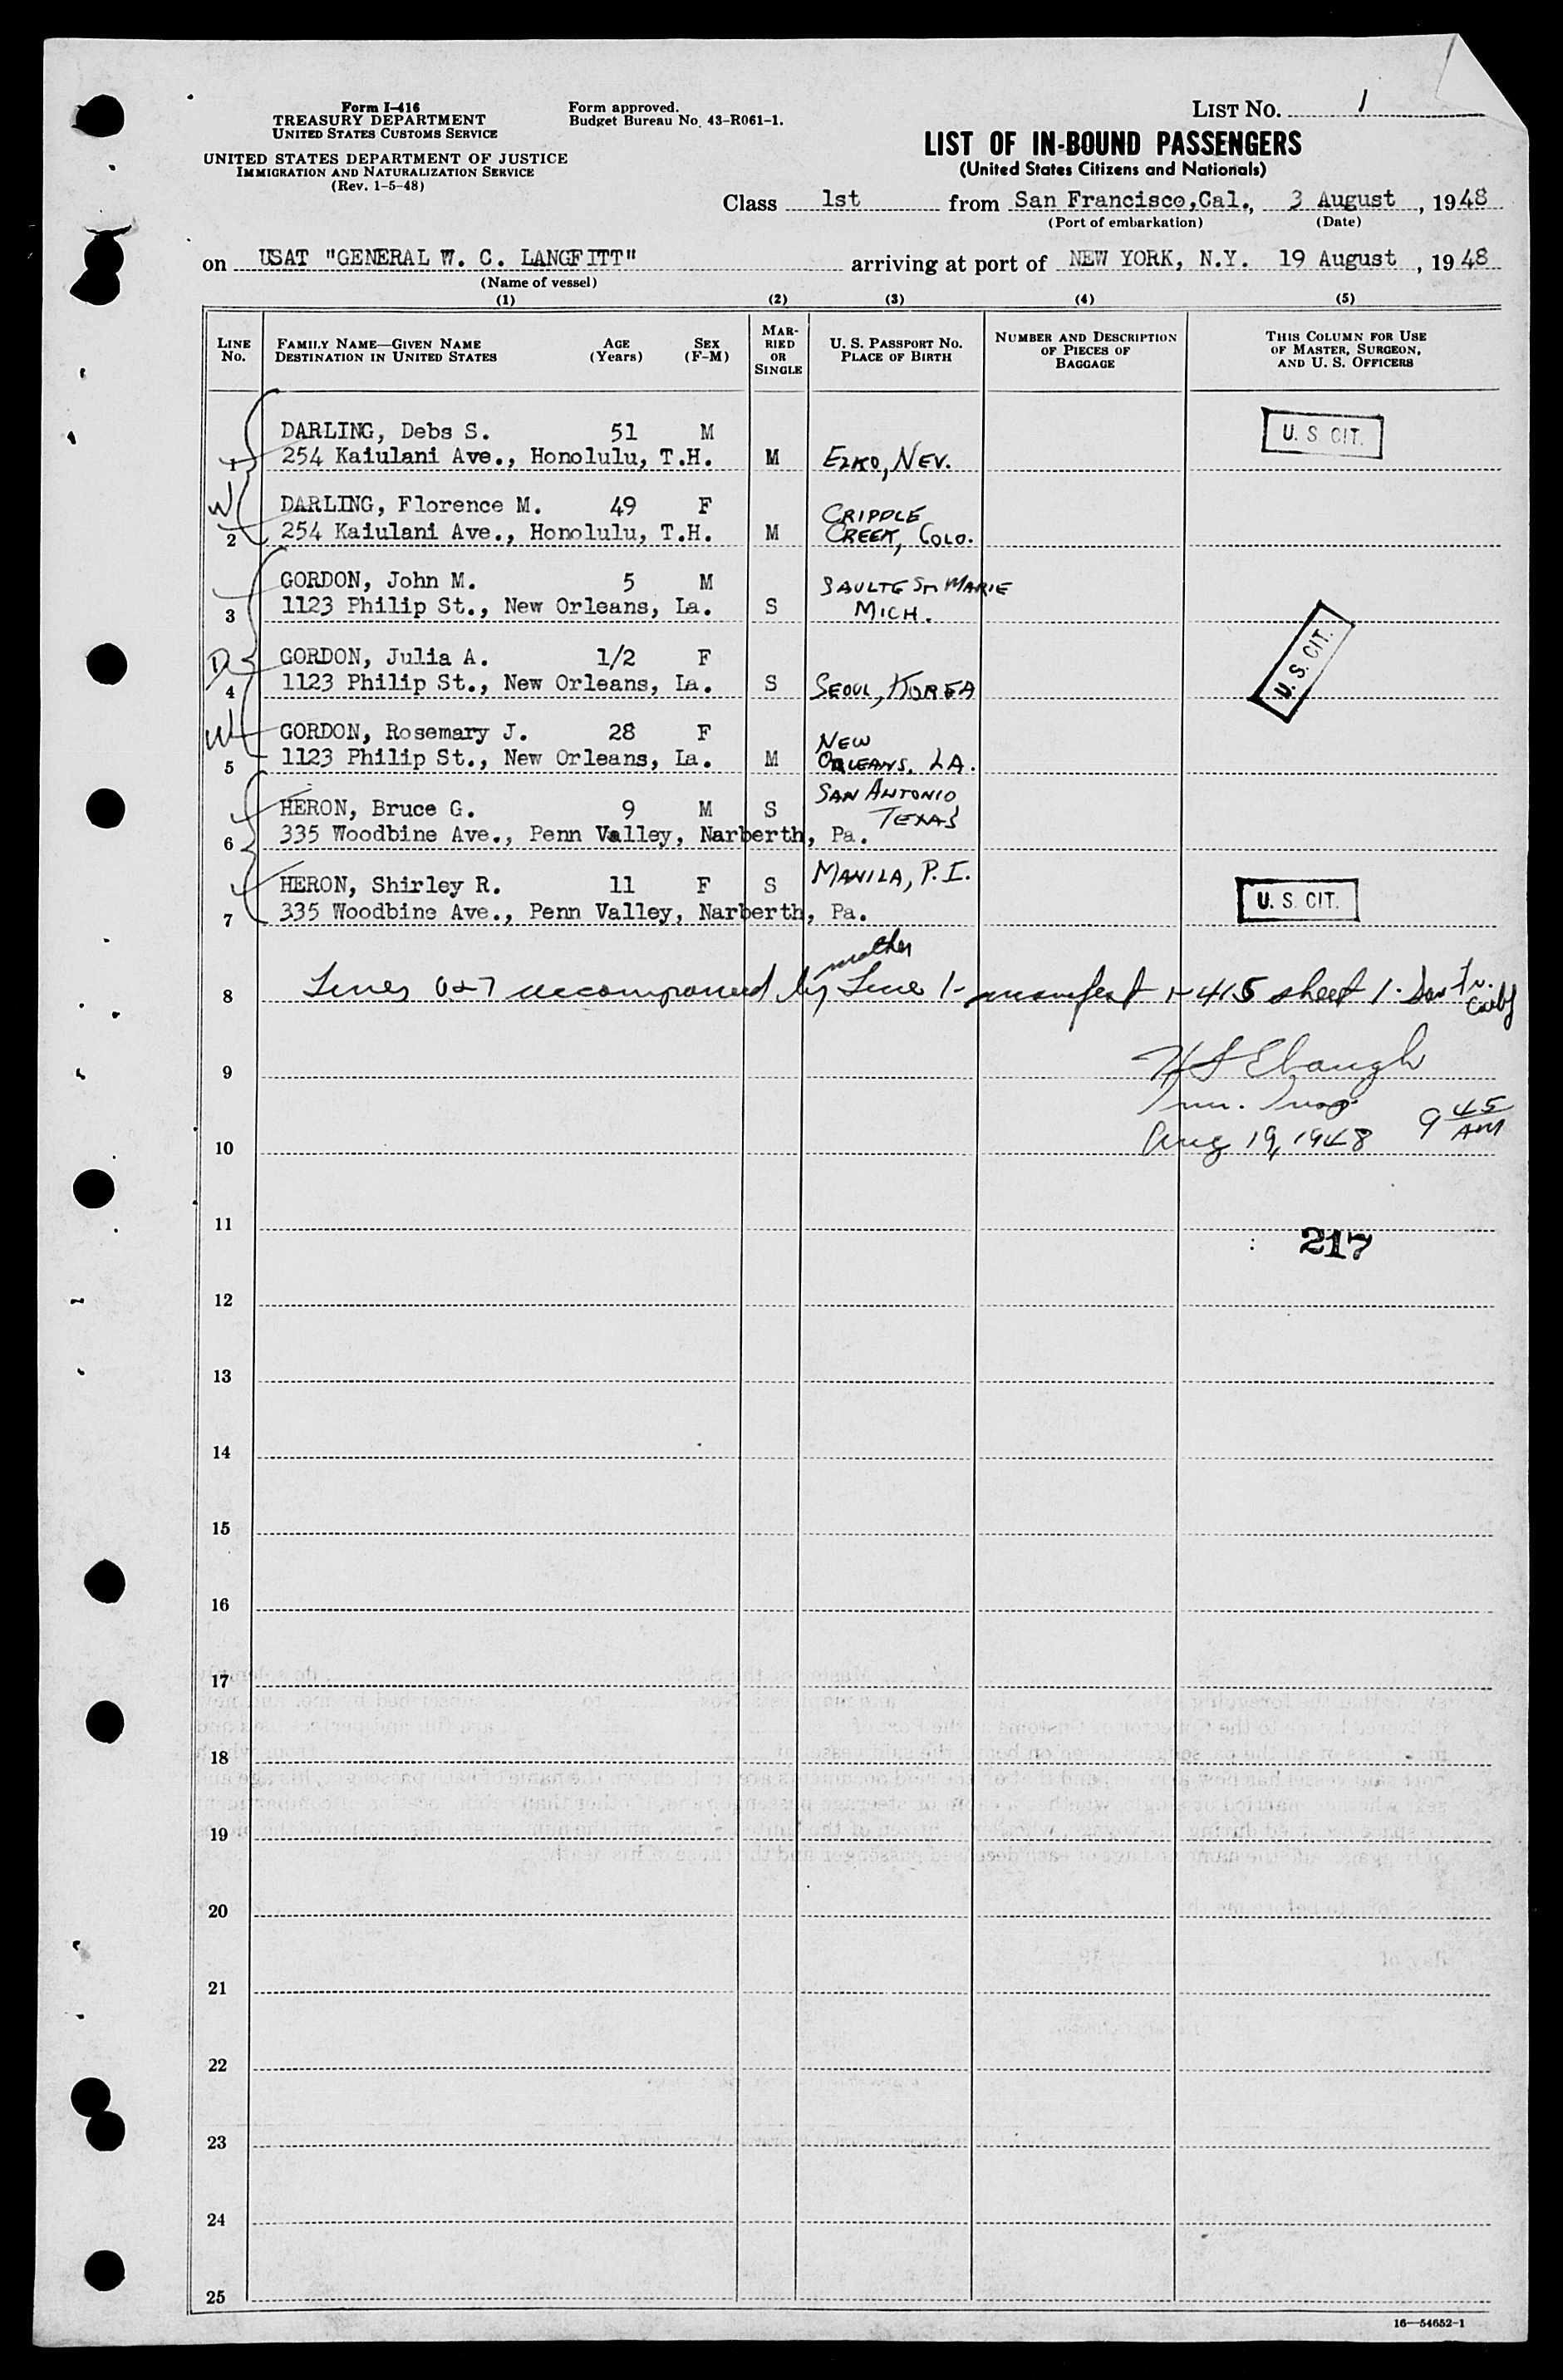 Form I-416
TREASURY DEPARTMENT
UNITED STATES CUSTOMS SERVICE
UNITED STATES DEPARTMENT OF JUSTICE
IMMIGRATION AND NATURALIZATION SERVICE
(Rev. 1-5-48)
Form approved.
Budget Bureau No. 43-R061-1.
LIST NO. 1
LIST OF IN-BOUND PASSENGERS
(United States Citizens and Nationals)
Class 1st from San Francisco,Cal., 3 August, 1948
(Port of embarkation) (Date)
on USAT "GENERAL W. C. LANGFITT" arriving at port of NEW YORK, N.Y. 19 August, 1948
(Name of vessel)
(1) (2) (3) (4) (5)
LINE No. FAMILY NAME—GIVEN NAME DESTINATION IN UNITED STATES AGE (Years) SEX (F-M) MARRIED OR SINGLE U. S. PASSPORT NO. PLACE OF BIRTH NUMBER AND DESCRIPTION OF PIECES OF BAGGAGE THIS COLUMN FOR USE OF MASTER, SURGEON, AND U. S. OFFICERS
DARLING, Debs S. 51 M U. S. CIT.
1 254 Kaiulani Ave., Honolulu, T.H. M ELKO, NEV.
W DARLING, Florence M. 49 F CRIPPLE
2 254 Kaiulani Ave., Honolulu, T.H. M CREEK, COLO.
GORDON, John M. 5 M SAULTE ST MARIE
3 1123 Philip St., New Orleans, La. S MICH.
D GORDON, Julia A. 1/2 F U. S. CIT.
4 1123 Philip St., New Orleans, La. S SEOUL, KOREA
W GORDON, Rosemary J. 28 F NEW
5 1123 Philip St., New Orleans, La. M ORLEANS, LA.
HERON, Bruce G. 9 M S SAN ANTONIO TEXAS
6 335 Woodbine Ave., Penn Valley, Narberth, Pa.
HERON, Shirley R. 11 F S MANILA, P.I. U. S. CIT.
7 335 Woodbine Ave., Penn Valley, Narberth, Pa.
mother
8 Lines 6+7 accompanied by Line 1- manifest I-415 sheet 1.
9 H S Ebaugh
Imm. Insp.
10 Aug 19, 1948 9 45 AM
11
217
12
13
14
15
16
17
18
19
20
21
22
23
24
25
16—54652-1